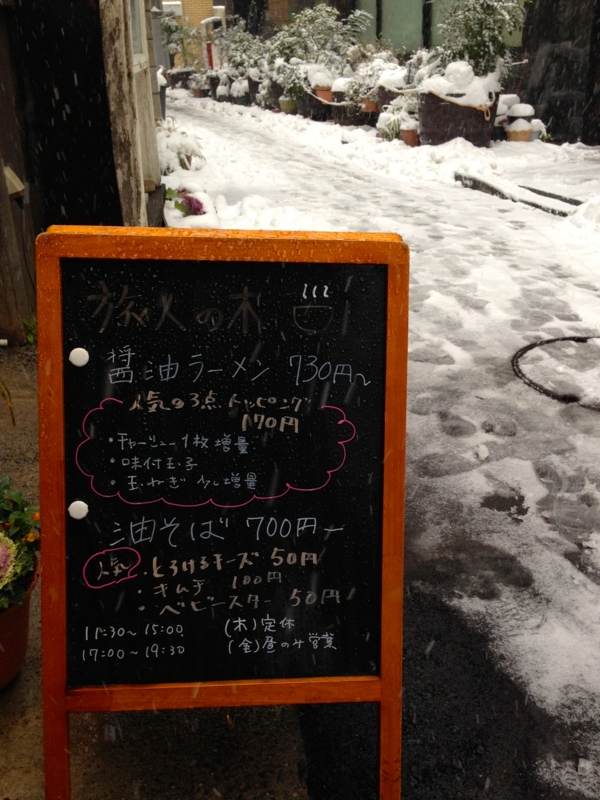 旅人の木
醤油ラーメン 730円〜
人気の3点トッピング
170円
・チャーシュー1枚増量
・味付玉子
・玉ねぎ 少し増量
油そば 700円〜
人気 ・とろけるチーズ 50円
・キムチ 100円
・ベビースター 50円
11:30〜15:00 (木)定休
17:00〜19:30 (金)昼のみ営業